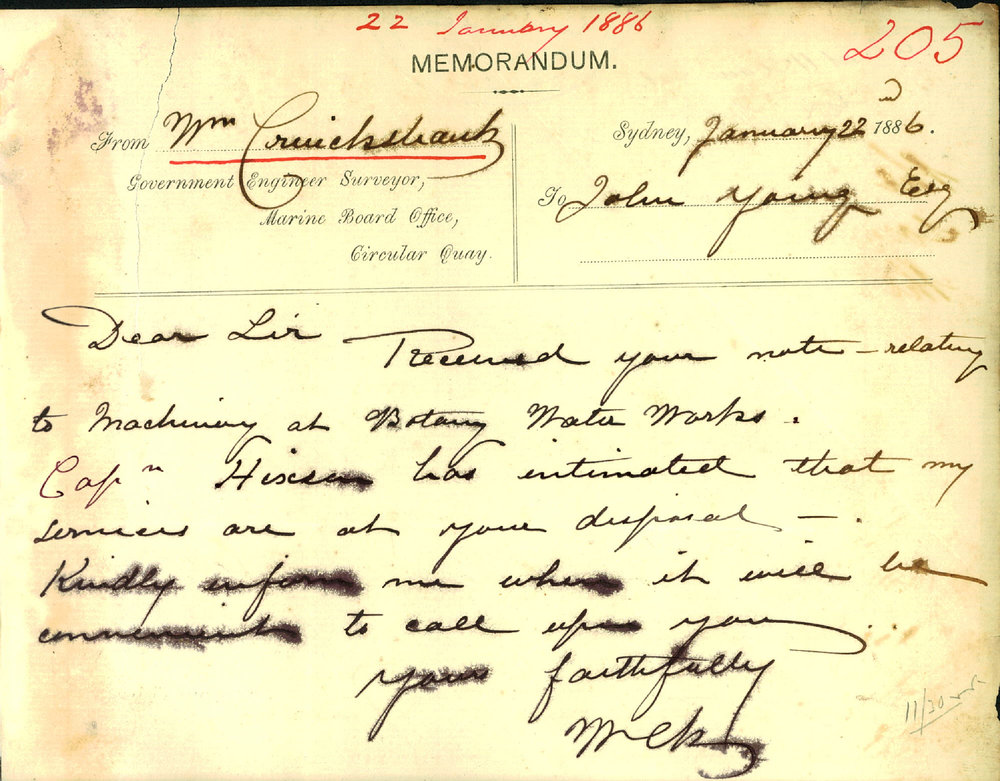 22 January 1886
205
MEMORANDUM.
From Wm Cruickshank
Government Engineer Surveyor,
Marine Board Office,
Circular Quay.
Sydney, January 22nd 1886.
To John Young Esq
Dear Sir
Received your note - relating
to Machinery at Botany Water Works.
Capn Hixson has intimated that my
services are at your disposal -.
Kindly inform me when it will be
convenient to call upon you.
Yours faithfully